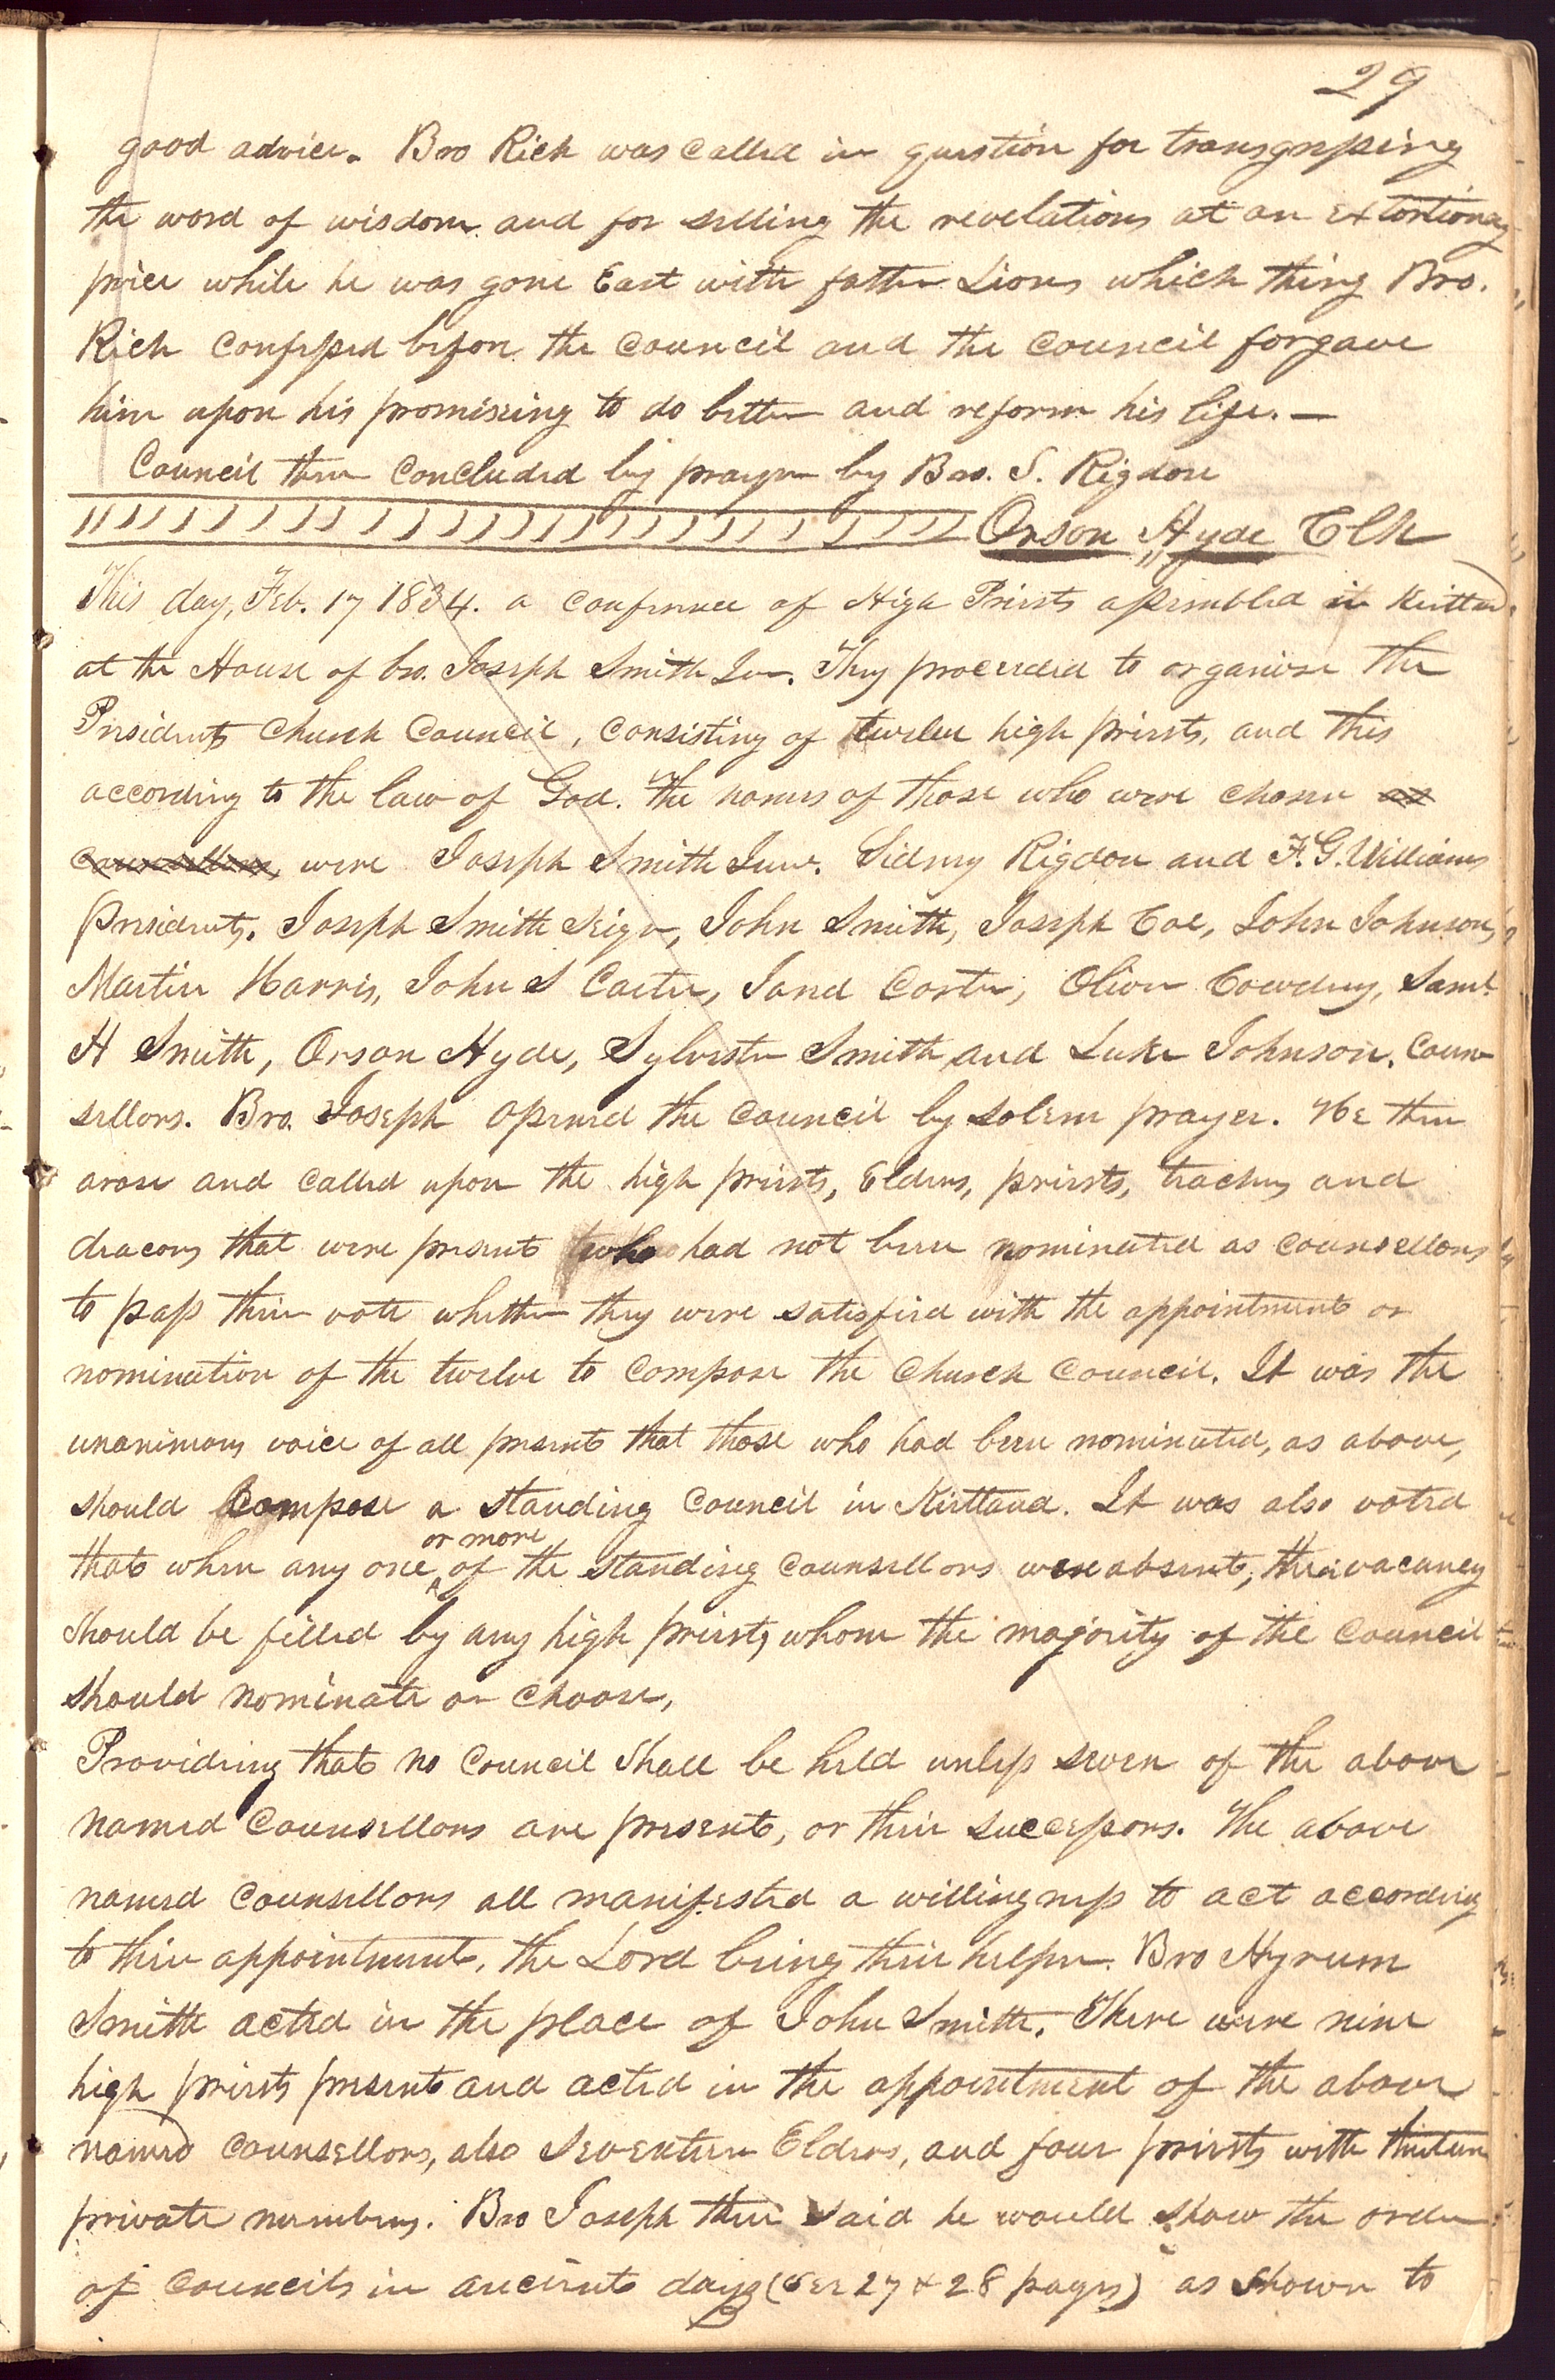 29
good advice. Bro Rich was called in question for transgressing
the word of wisdom and for selling the revelations at an extortionary
price while he was gone East with father Lions which thing Bro.
Rich confessed before the council and the council forgave
him upon his promising to do better and reform his life. —
Council then concluded by prayer by Bro. S. Rigdon
Orson Hyde Clk
This day, Feb. 17 1834. a conference of High Priests assembled in Kirtland
at the House of bro. Joseph Smith Jun. They proceeded to organise the
Presidents Church Council, consisting of twelve high priests, and this
according to the law of God. The names of those who were chosen as
Counsellors, were Joseph Smith Junr. Sidney Rigdon and F. G. Williams
Presidents. Joseph Smith Seignr, John Smith, Joseph Coe, John Johnson,
Martin Harris, John S Carter, Jared Carter, Oliver Cowdery, Saml.
H Smith, Orson Hyde, Sylvester Smith and Luke Johnson. Coun-
sellors. Bro. Joseph opened the council by solem prayer. He then
arose and called upon the high priests, Elders, priests, teachers and
deacons that were present who had not been nominated as counsellors
to pass their vote whether they were satisfied with the appointment or
nomination of the twelve to compose the Church Council. It was the
unanimous voice of all present that those who had been nominated, as above,
should compose a standing council in Kirtland. It was also voted
that when any one or more of the standing counsellors were absent, their vacancy
should be filled by any high priests, whom the majority of the council
should nominate or choose,
Providing that no council shall be held unless seven of the above
named counsellors are present, or their successors. The above
named counsellors all manifested a willingness to act according
to their appointment, the Lord being their helper. Bro Hyrum
Smith acted in the place of John Smith. There were nine
high priests present and acted in the appointment of the above
named counsellors, also seventeen Elders, and four priests with thirteen
private members. Bro Joseph then said he would show the order
of councils in ancient days (See 27 & 28 pages) as shown to